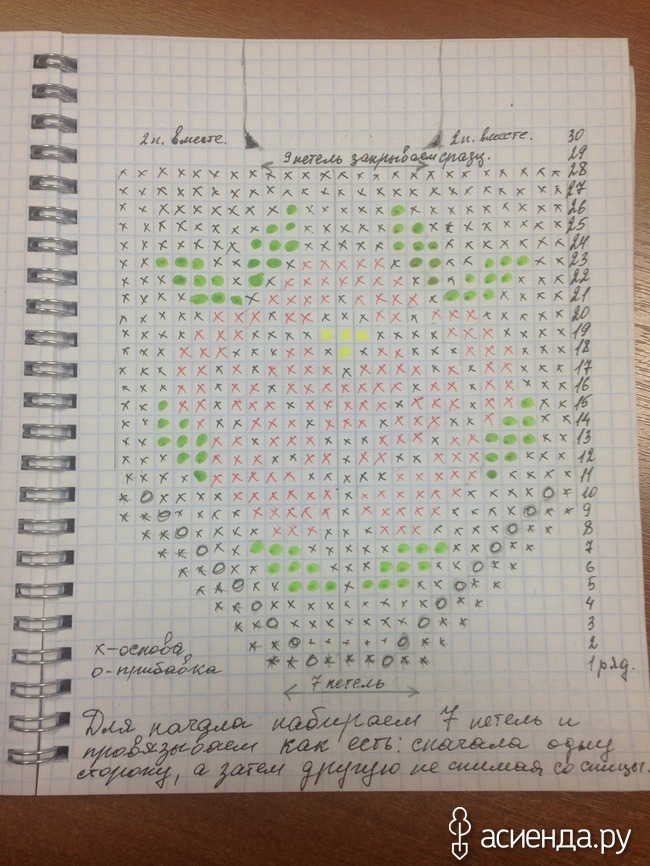 2п. вместе. 2п. вместе. 30
9 петель закрываем сразу. 29
28
27
26
25
24
23
22
21
20
19
18
17
16
15
14
13
12
11
10
9
8
7
6
5
4
3
х-основа 2
о-прибавка 1 ряд.
7 петель
Для начала набираем 7 петель и
провязываем как есть: сначала одну
сторону, а затем другую не снимая со спицы.
асиенда.ру